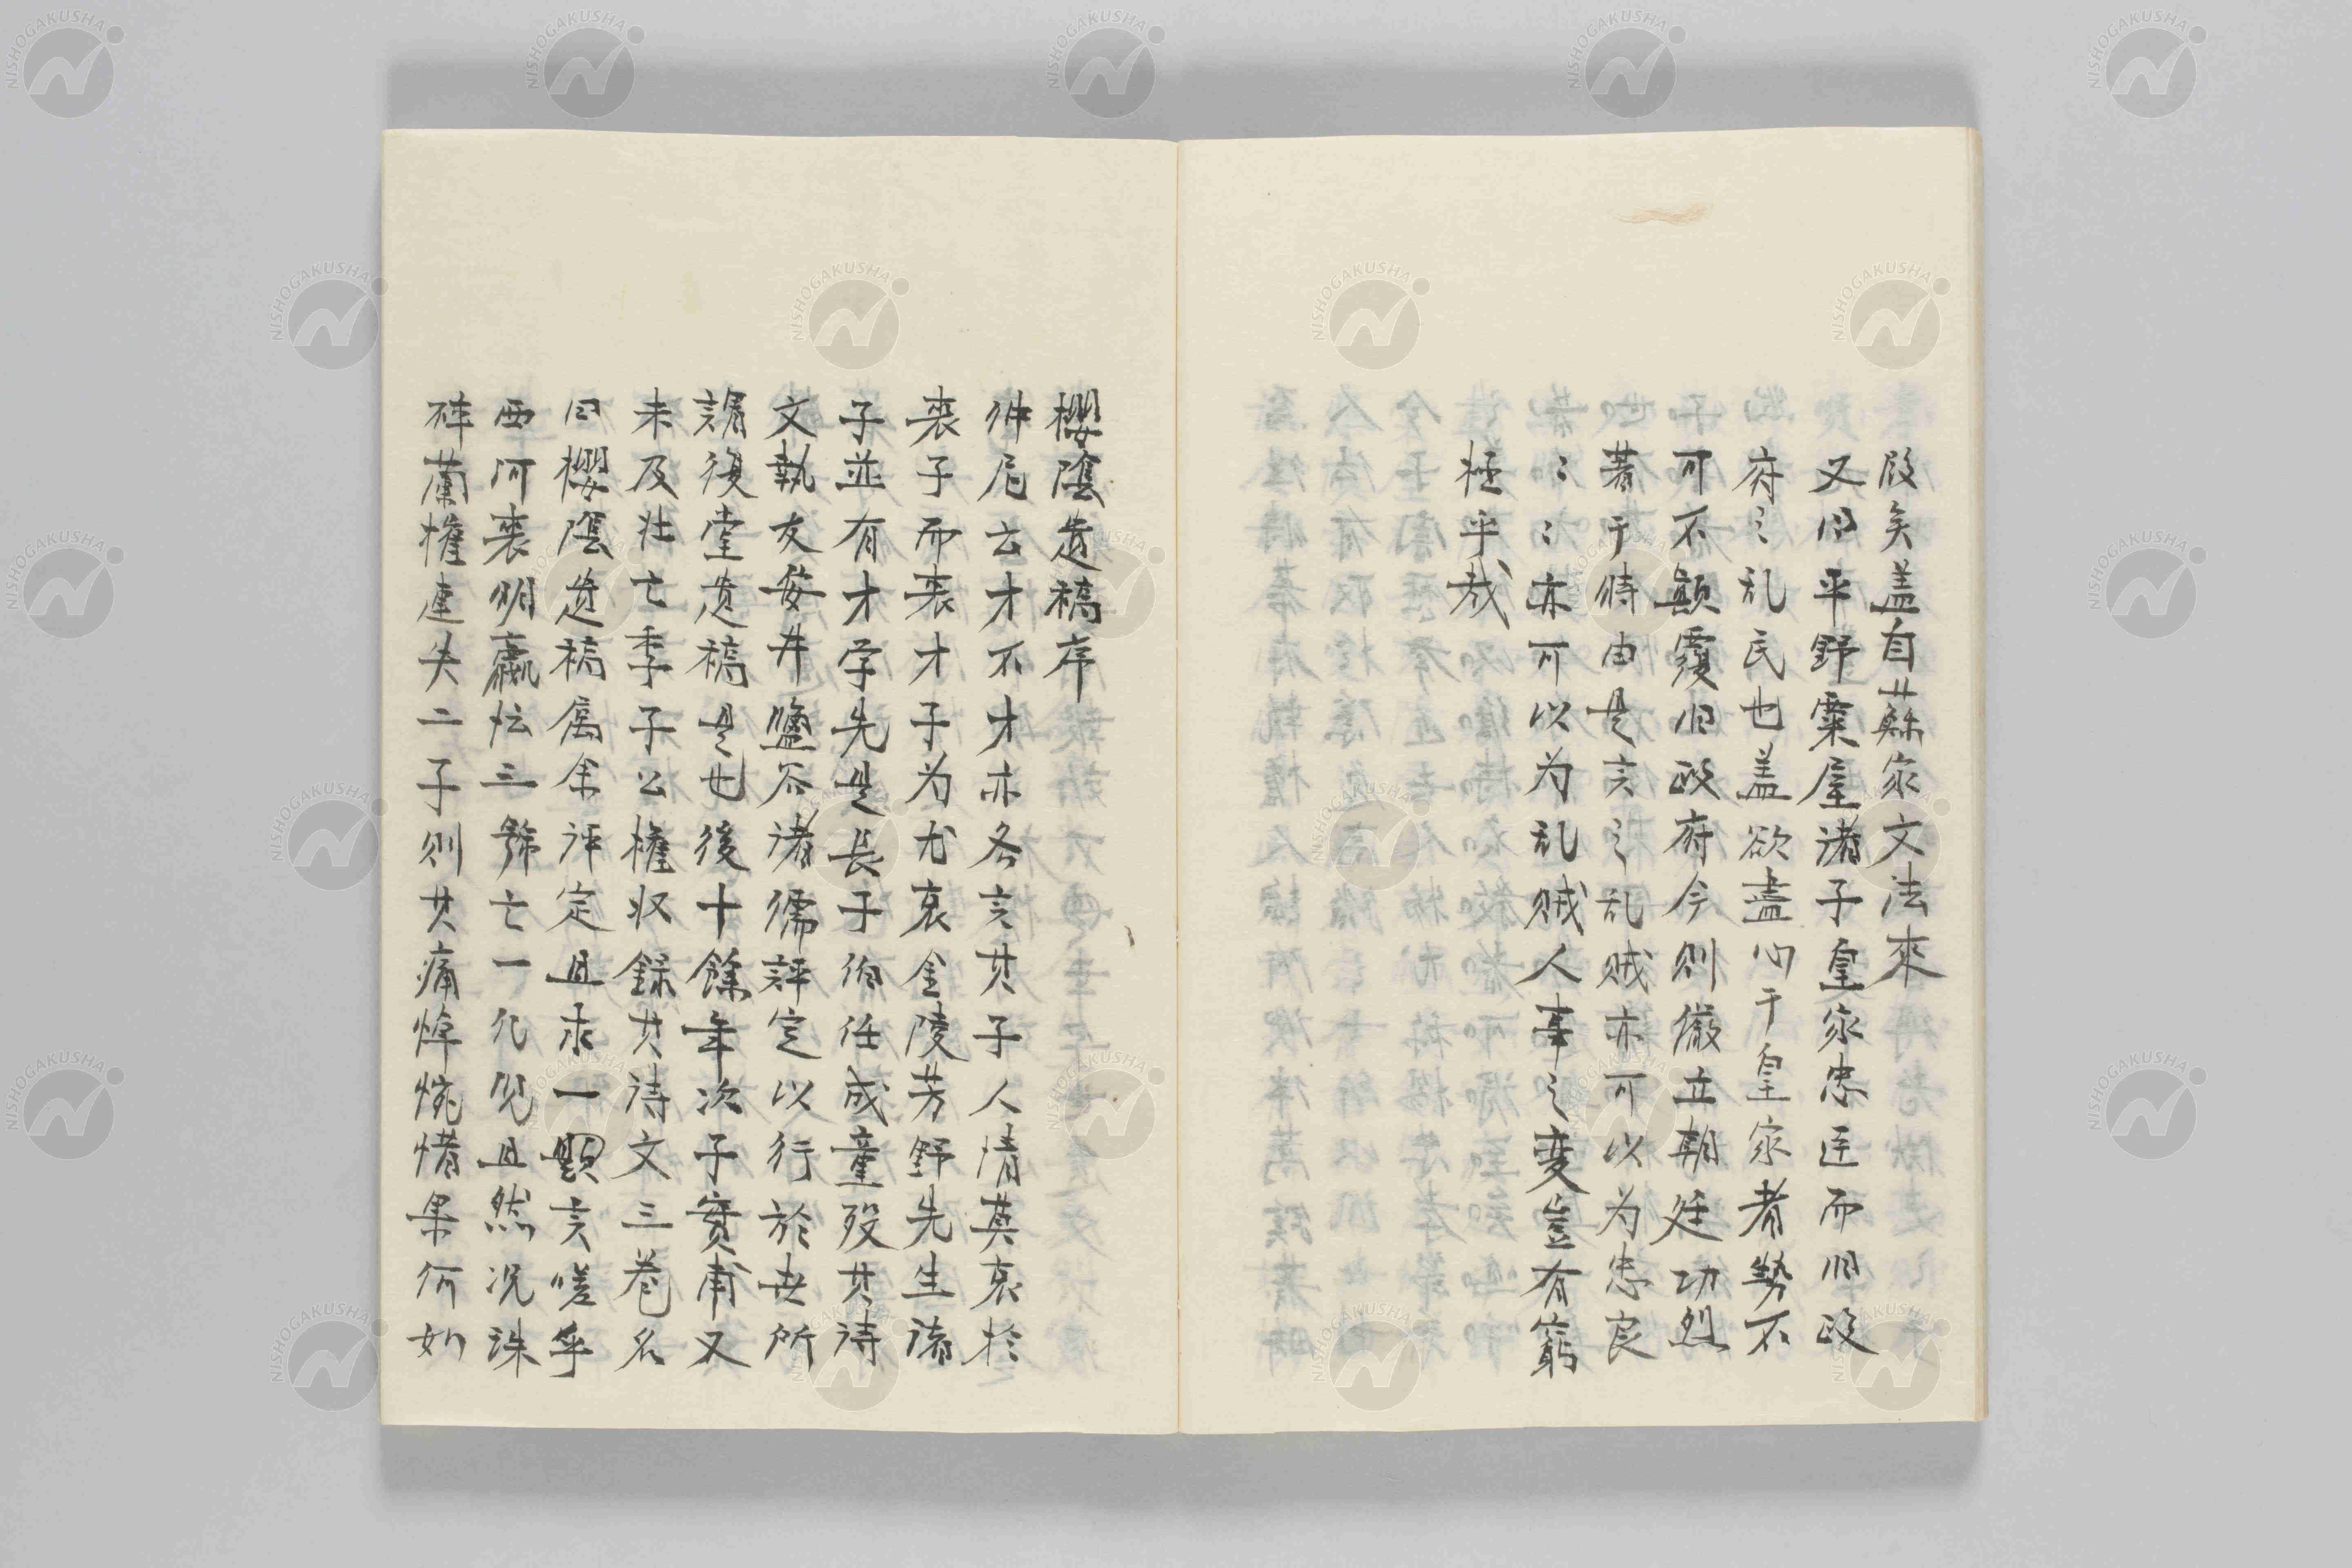 段矣盖自蘇家文法來
又曰平野粟屋諸子皇家忠臣而旧政
府之乱民也盖欲盡心于皇家者勢不
可不顛覆旧政府今則儼立朝廷功烈
著于時由是言之乱賊亦可以为忠良
忠良亦可以为乱賊人事之変豈有窮
極乎哉
櫻陰遺稿序
仲尼云才不才亦各言其子人情莫哀於
喪子而喪才子为尤哀金陵芳野先生諸
子並有才学先是長子伯任成童歿其詩
文執友安井鹽谷諸儒評定以行於世所
謂復堂遺稿是也後十餘年次子實甫又
未及壮亡季子公権収録其詩文三巻名
曰櫻陰遺稿属余評定且求一題言嗟乎
西河喪明嬴怯三號亡一凡児且然况誅
碎蘭摧連失二子則其痛悼惋惜果何如
NISHOGAKUSHA